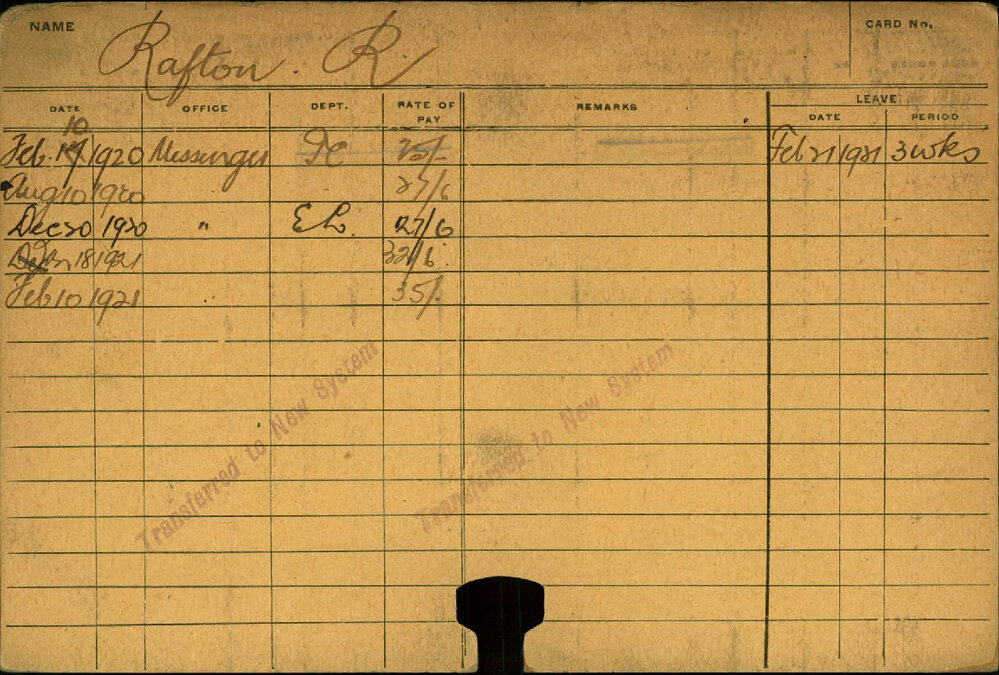 NAME Rafton. R. CARD No.
DATE OFFICE DEPT. RATE OF PAY REMARKS LEAVE
DATE PERIOD
10
Feb. 1920 Messenger Feb 21 1921 3 wks
Aug 10 1920 27/6
Dec 20 1920 " E.L. 27/6
18 1921 32/6
Feb 10 1921 " 35/-
Transferred to New System
Transferred to New System